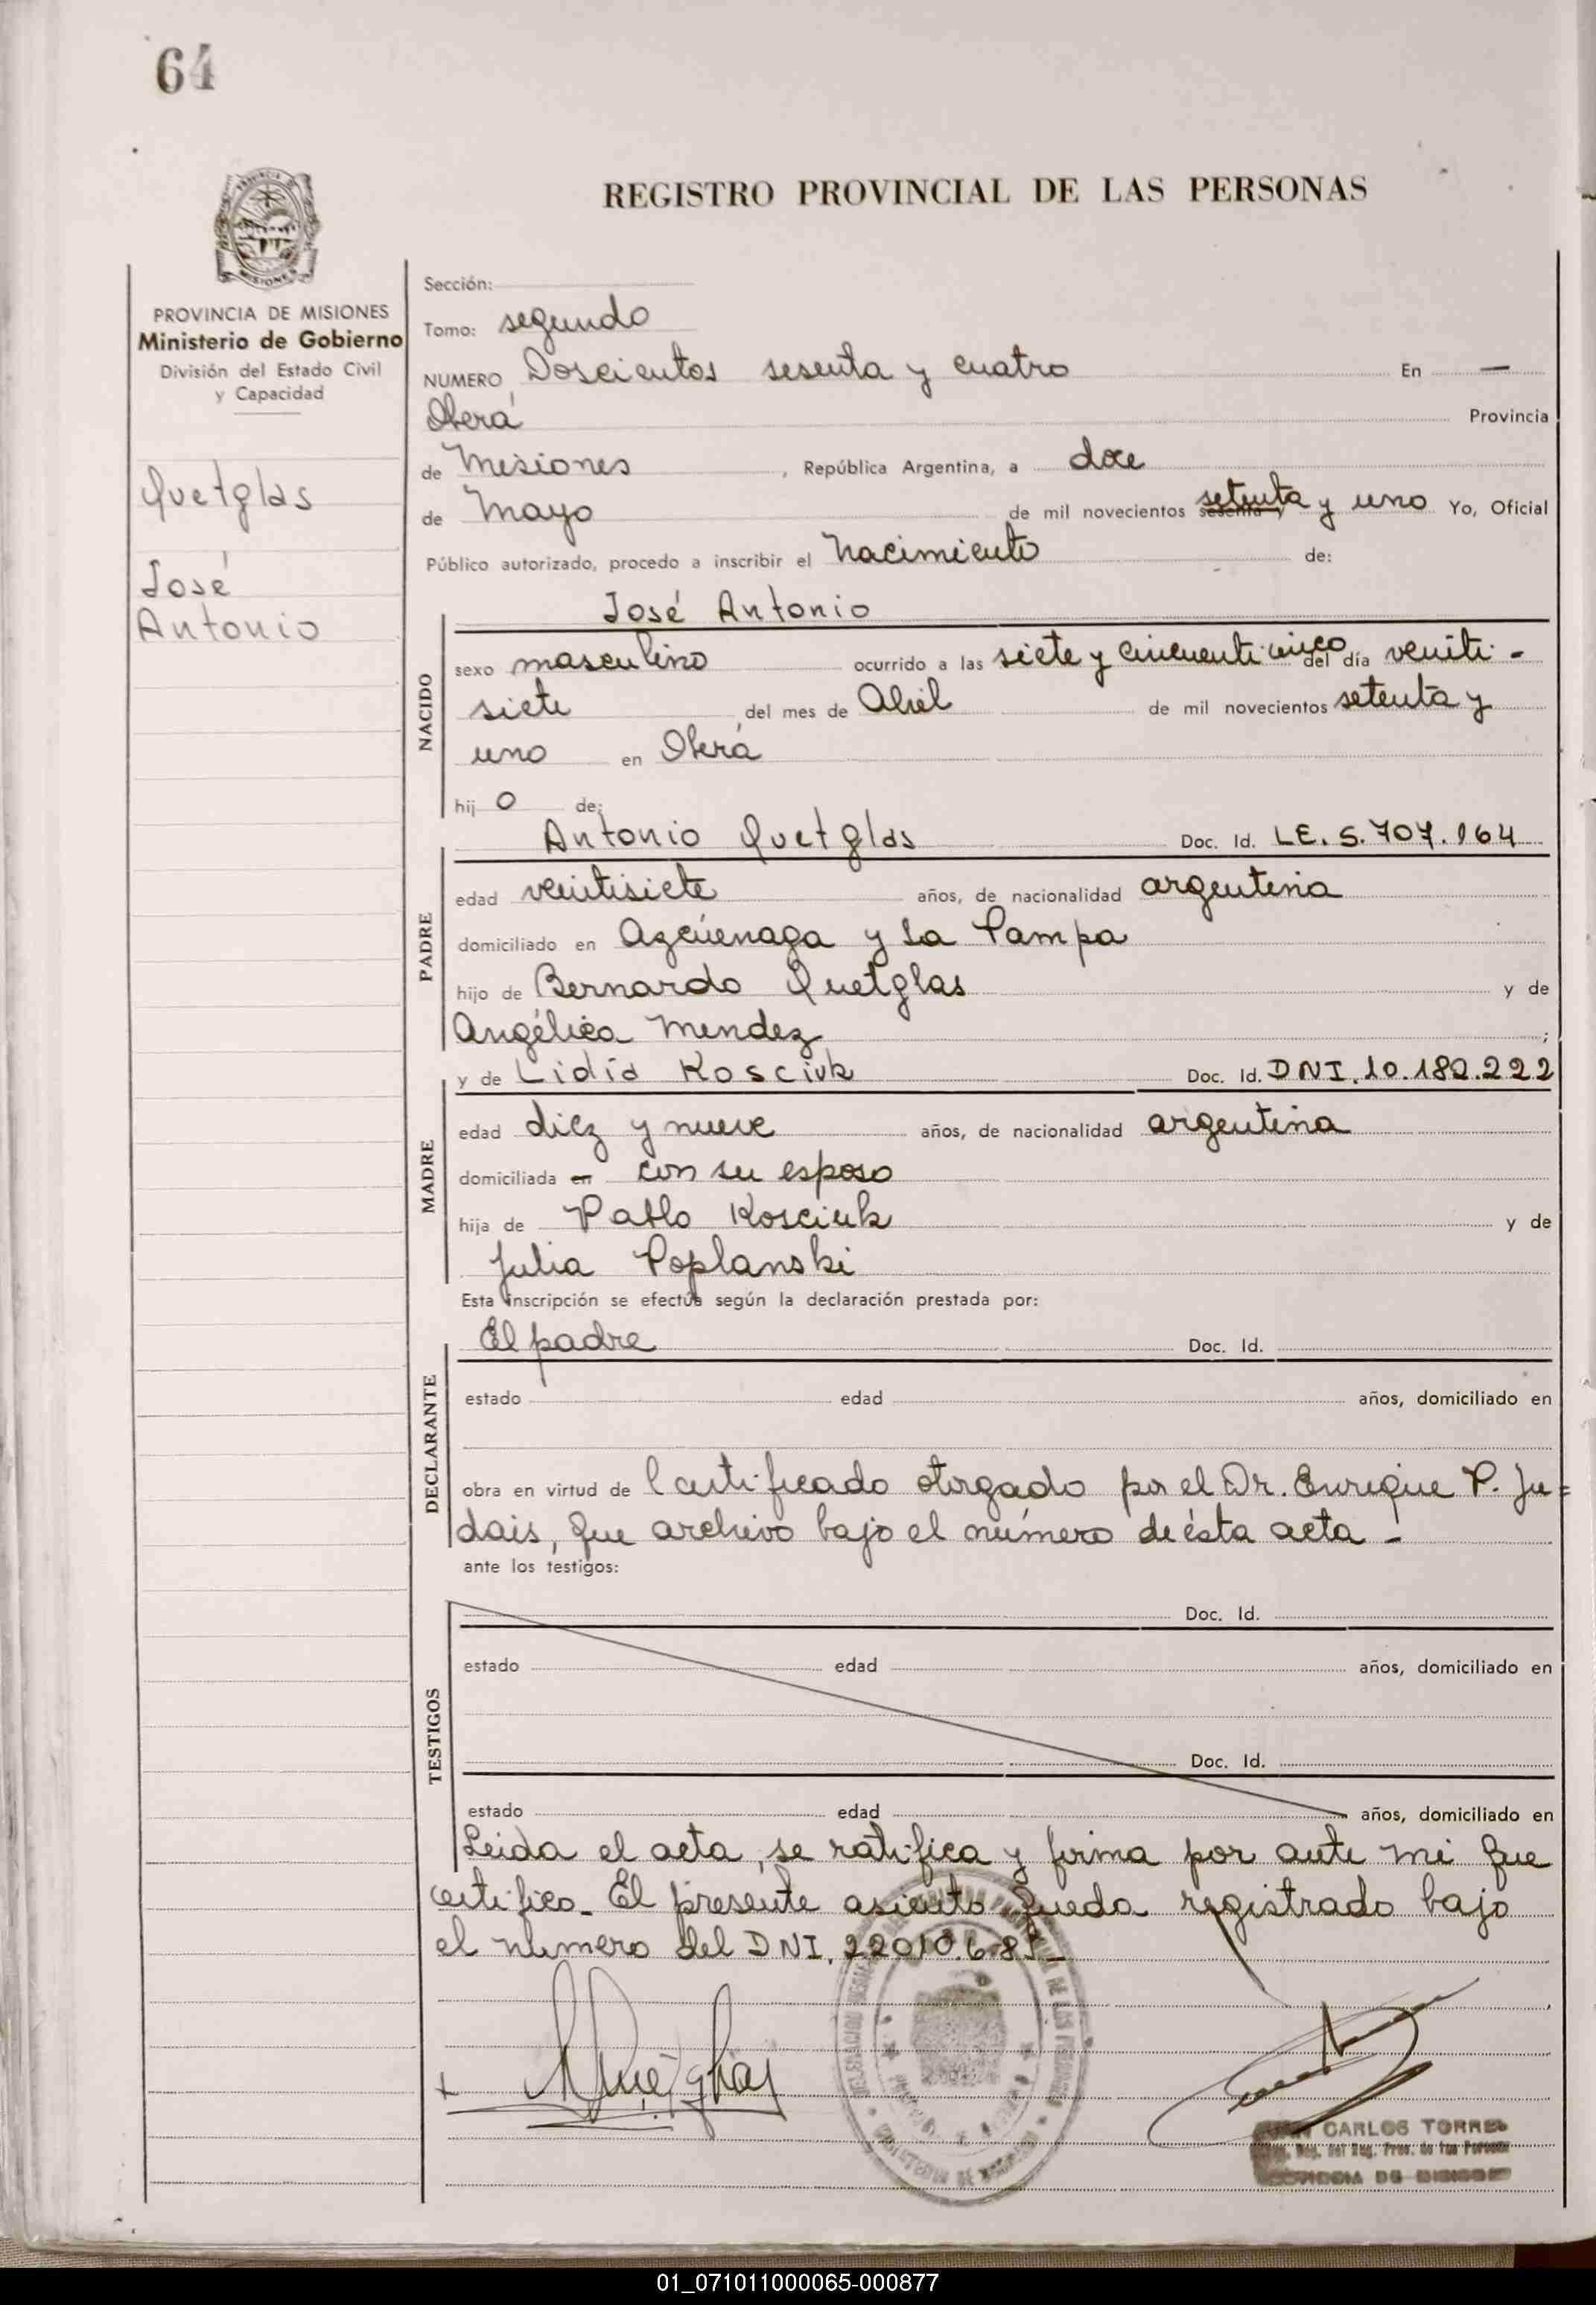 64
REGISTRO PROVINCIAL DE LAS PERSONAS
PROVINCIA DE MISIONES
Ministerio de Gobierno
División del Estado Civil
y Capacidad
Quetglas
José
Antonio
Sección:
Tomo: segundo
NUMERO Doscientos sesenta y cuatro En —
Oberá Provincia
de Misiones, República Argentina, a doce
de Mayo de mil novecientos setenta y uno Yo, Oficial
Público autorizado, procedo a inscribir el nacimiento de:
José Antonio
NACIDO
sexo masculino ocurrido a las siete y cincuenticinco del día veinti-
siete del mes de Abril de mil novecientos setenta y
uno en Oberá
hijo de:
PADRE
Antonio Quetglas Doc. Id. LE. 5.707.164
edad veintisiete años, de nacionalidad argentina
domiciliado en Azcúenaga y La Pampa
hijo de Bernardo Quetglas y de
Angélica Mendez ;
MADRE
y de Lidia Kosciuk Doc. Id. DNI. 10.182.222
edad diez y nueve años, de nacionalidad argentina
domiciliada en con su esposo
hija de Pablo Kosciuk y de
Julia Poplanski
Esta inscripción se efectúa según la declaración prestada por:
DECLARANTE
El padre Doc. Id.
estado edad años, domiciliado en
obra en virtud de Certificado otorgado por el Dr. Enrique P. Ju=
dais, que archivo bajo el número de ésta acta.-
ante los testigos:
TESTIGOS
Doc. Id.
estado edad años, domiciliado en
Doc. Id.
estado edad años, domiciliado en
Leida el acta, se ratifica y firma por ante mi que
certifico.- El presente asiento queda registrado bajo
el número del DNI. 22010.685-
CARLOS TORRE
01_071011000065-000877